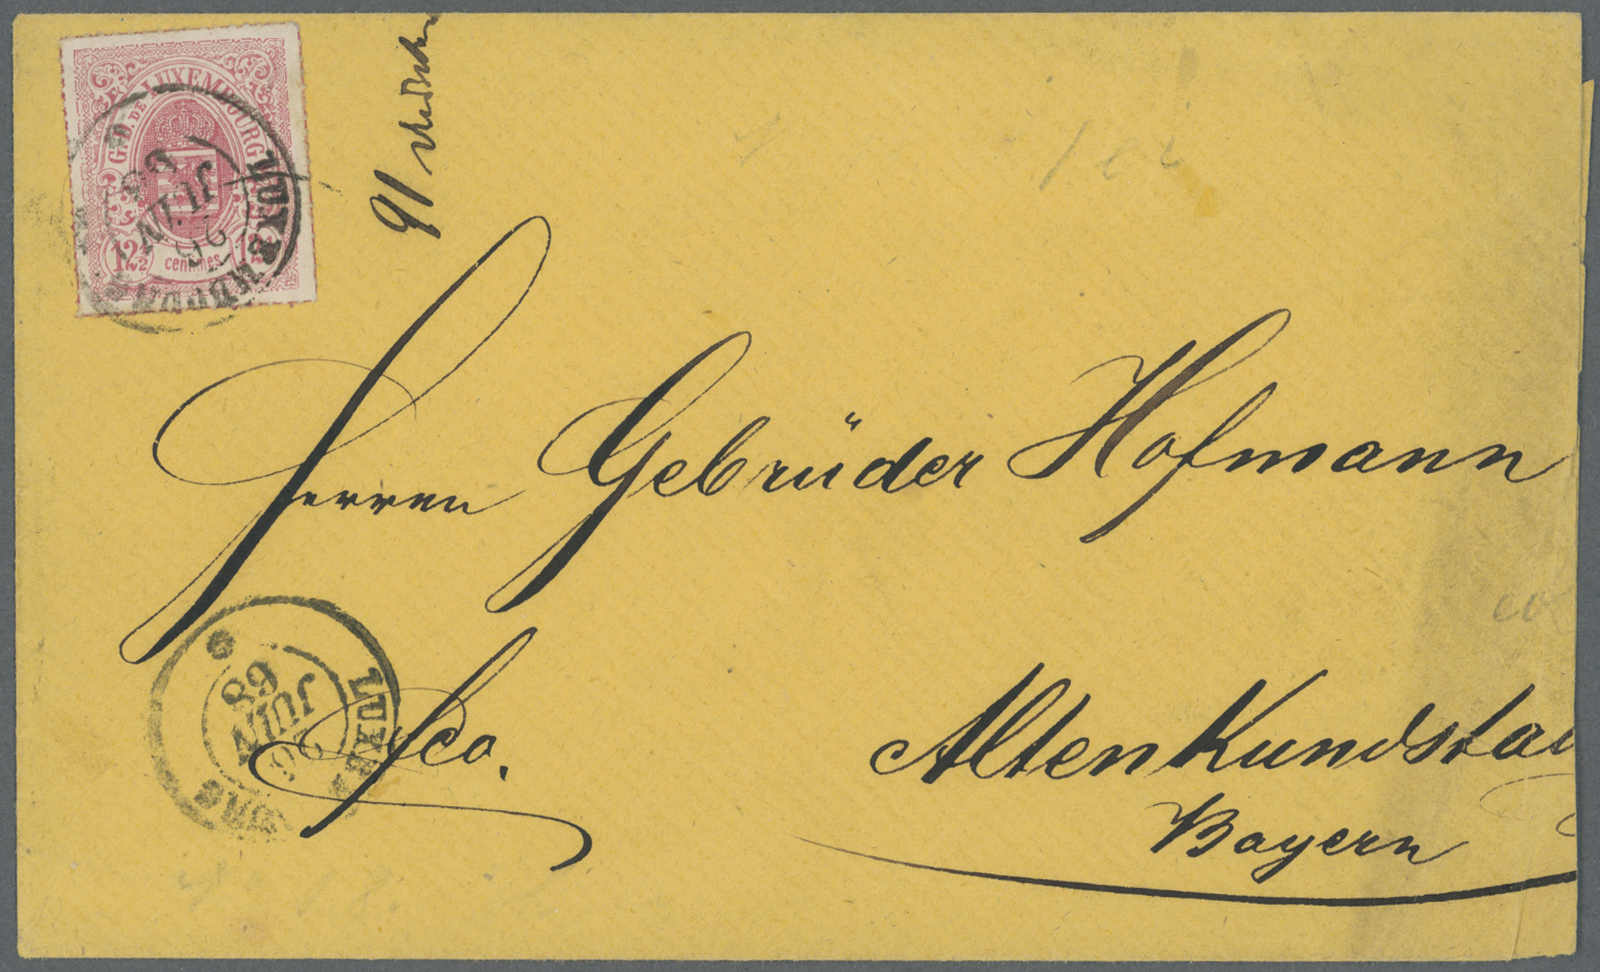 G.D. DE LUXEMBOURG
12½ centimes 12½
LUXEMBOURG
26
JUIN
68
91
Herren Gebrüder Hofmann
fco.
Altenkundsta
Bayern
LUXEMBOURG
26
JUIN
68